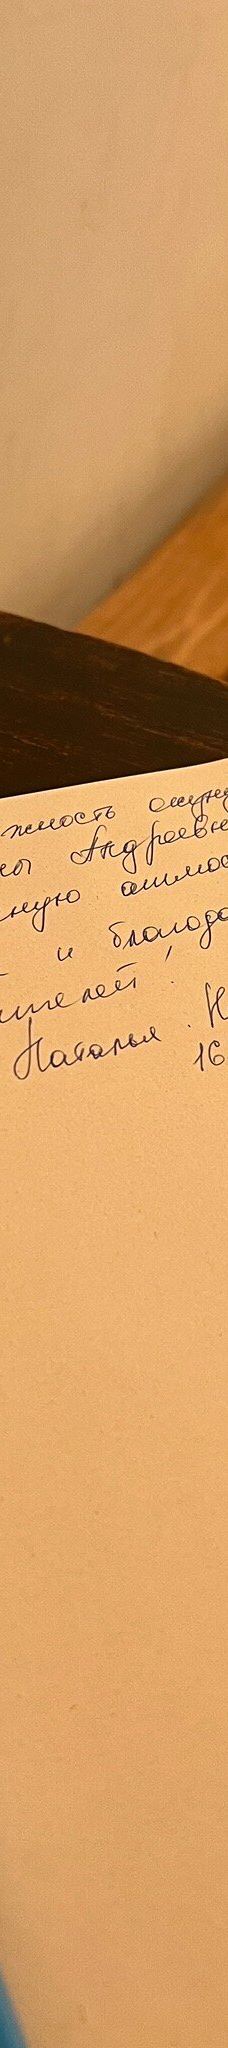 жность окуну
ны Андреевн
ную атмос
и благода
ителей!
Наталья. Н
16